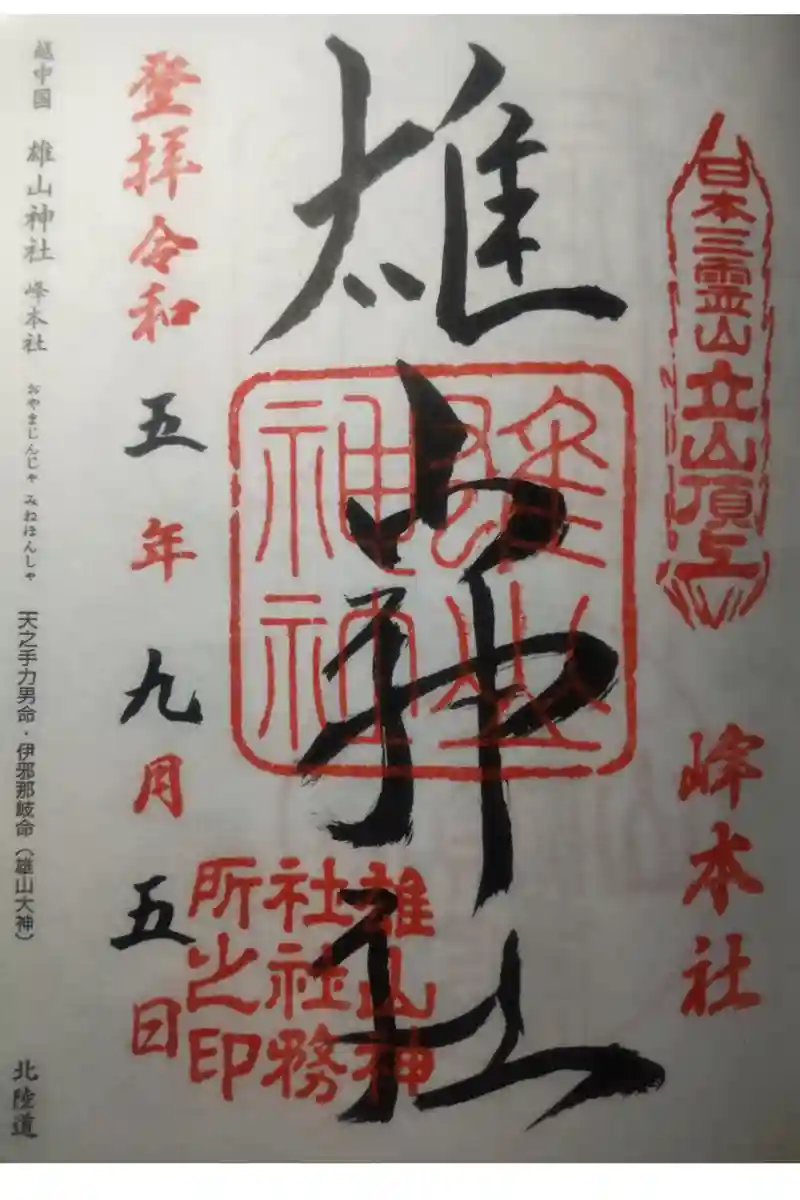 日本三霊山立山頂上
峰本社
雄山神社
雄山神
社社務
所之印
登拝令和五年九月五日
越中国 雄山神社 峰本社 おやまじんじゃ みねほんしゃ 天之手力男命・伊邪那岐命（雄山大神） 北陸道